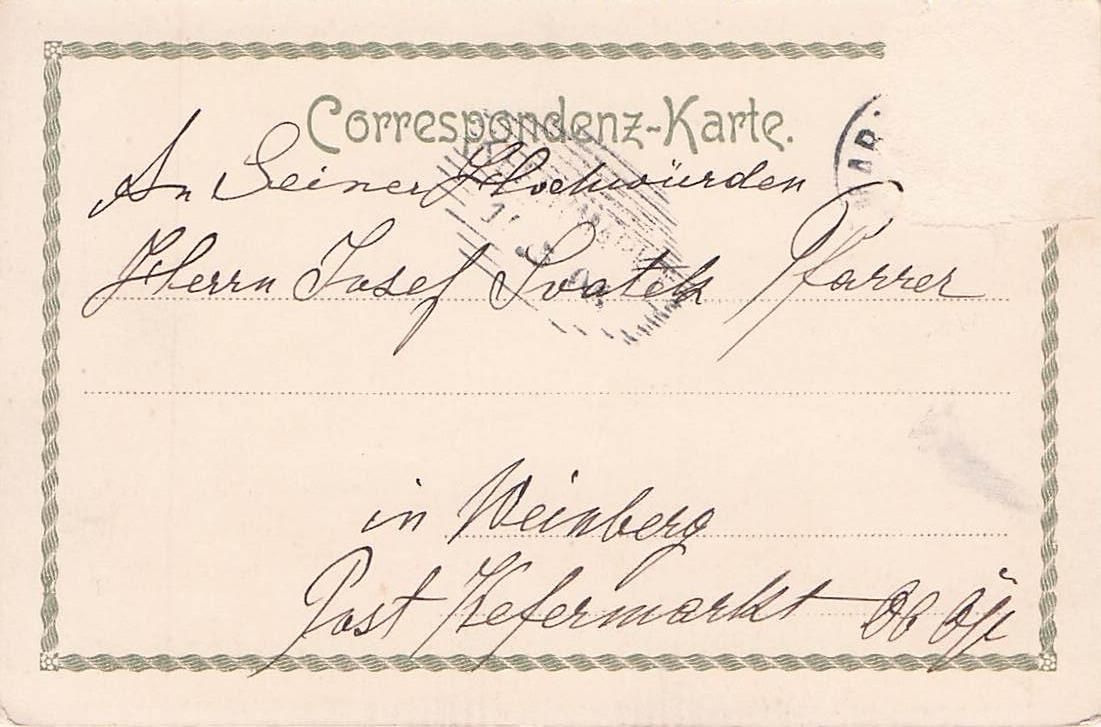 Correspondenz-Karte.
An Seiner Hochwürden
Herrn Josef Svatek Pfarrer
in Weinberg
Post Kefermarkt